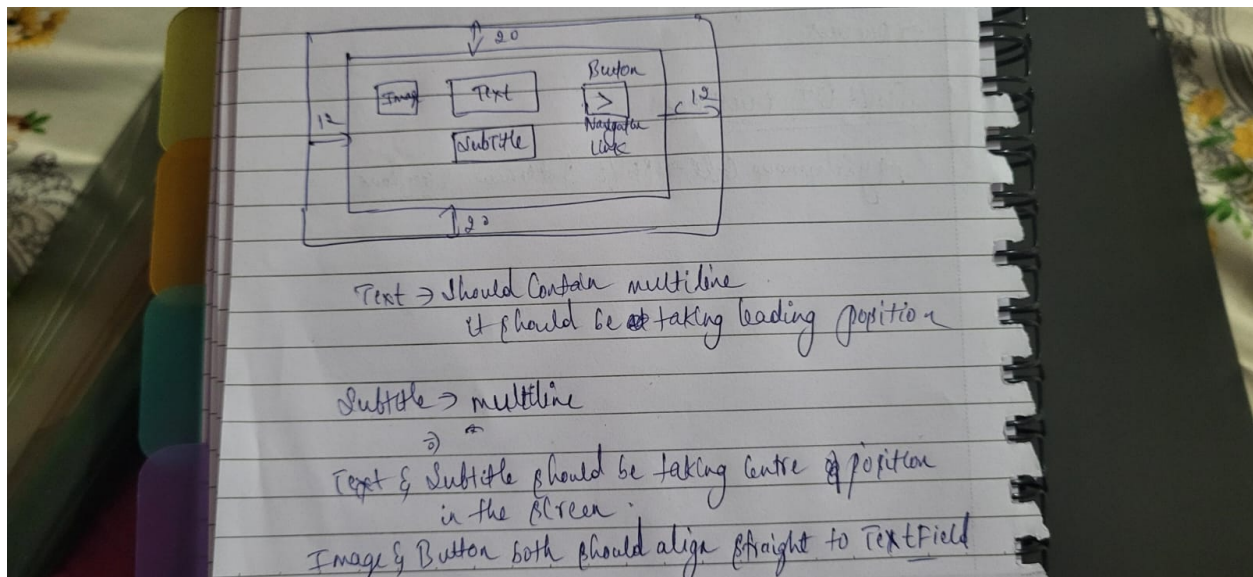 20
Image
Text
Button
>
12
12
Subtitle
Navigation
Link
20
Text → Should Contain multiline
it should be taking leading position
Subtitle → multiline
Text & Subtitle should be taking centre position
in the screen.
Image & Button both should align straight to TextField